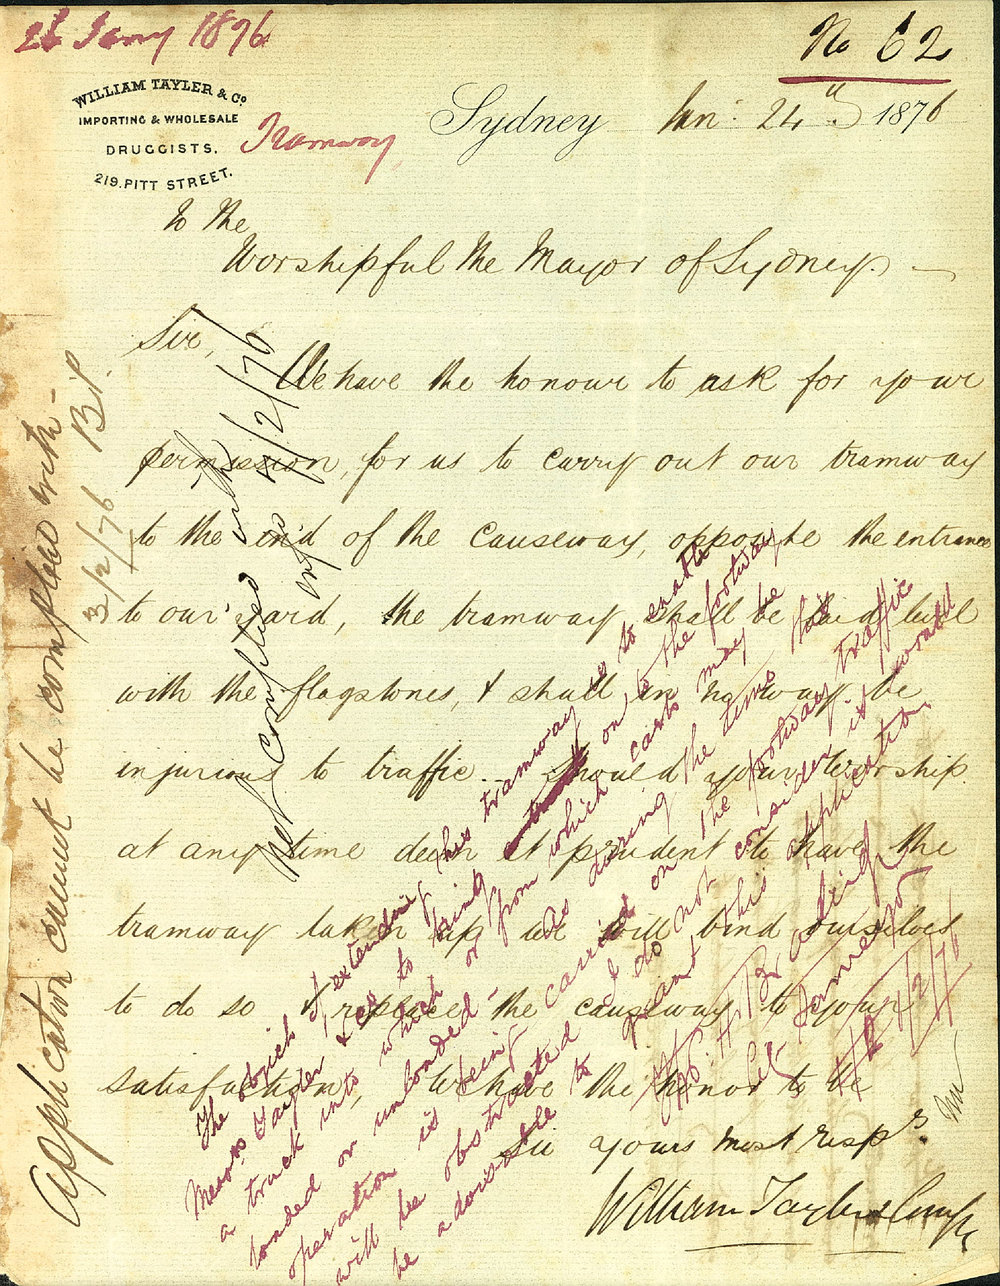 26 Jany 1876
No 62
WILLIAM TAYLER & Co
IMPORTING & WHOLESALE
DRUGGISTS.
219. PITT STREET.
Tramway
Sydney Jan: 24th 1876
To the
Worshipful the Mayor of Sydney.
Sir,
We have the honour to ask for your
permission, for us to carry out our tramway
to the end of the causeway, opposite the entrance
to our yard, the tramway shall be laid level
with the flagstones, & shall in no way be
injurious to traffic. Should your worship
at any time deem it prudent to have the
tramway taken up we will bind ourselves
to do so & replace the causeway to your
satisfaction, We have the honor to be
Sir yours most respy
William Tayler & Compy
Application cannot be complied with -
3/2/76 B.P.
Not complied with
4/2/76
The object of extending this tramway is to enable
Messrs Tayler & Co to bring a truck on to the footway
into which or from which carts may be
loaded or unloaded - As during the time this
operation is being carried on the footway traffic
will be obstructed I do not consider it would
be advisable to grant this application.
1/2/76